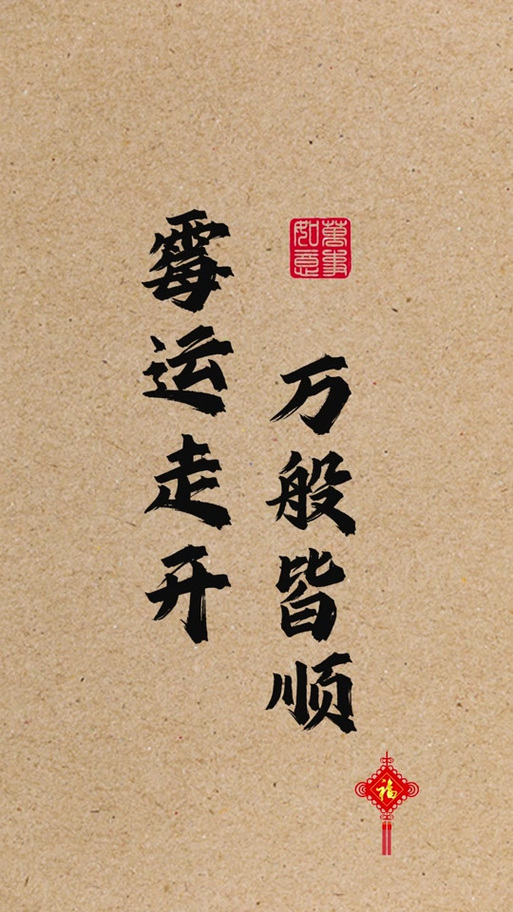 霉运走开
萬事如意
万般皆顺
福